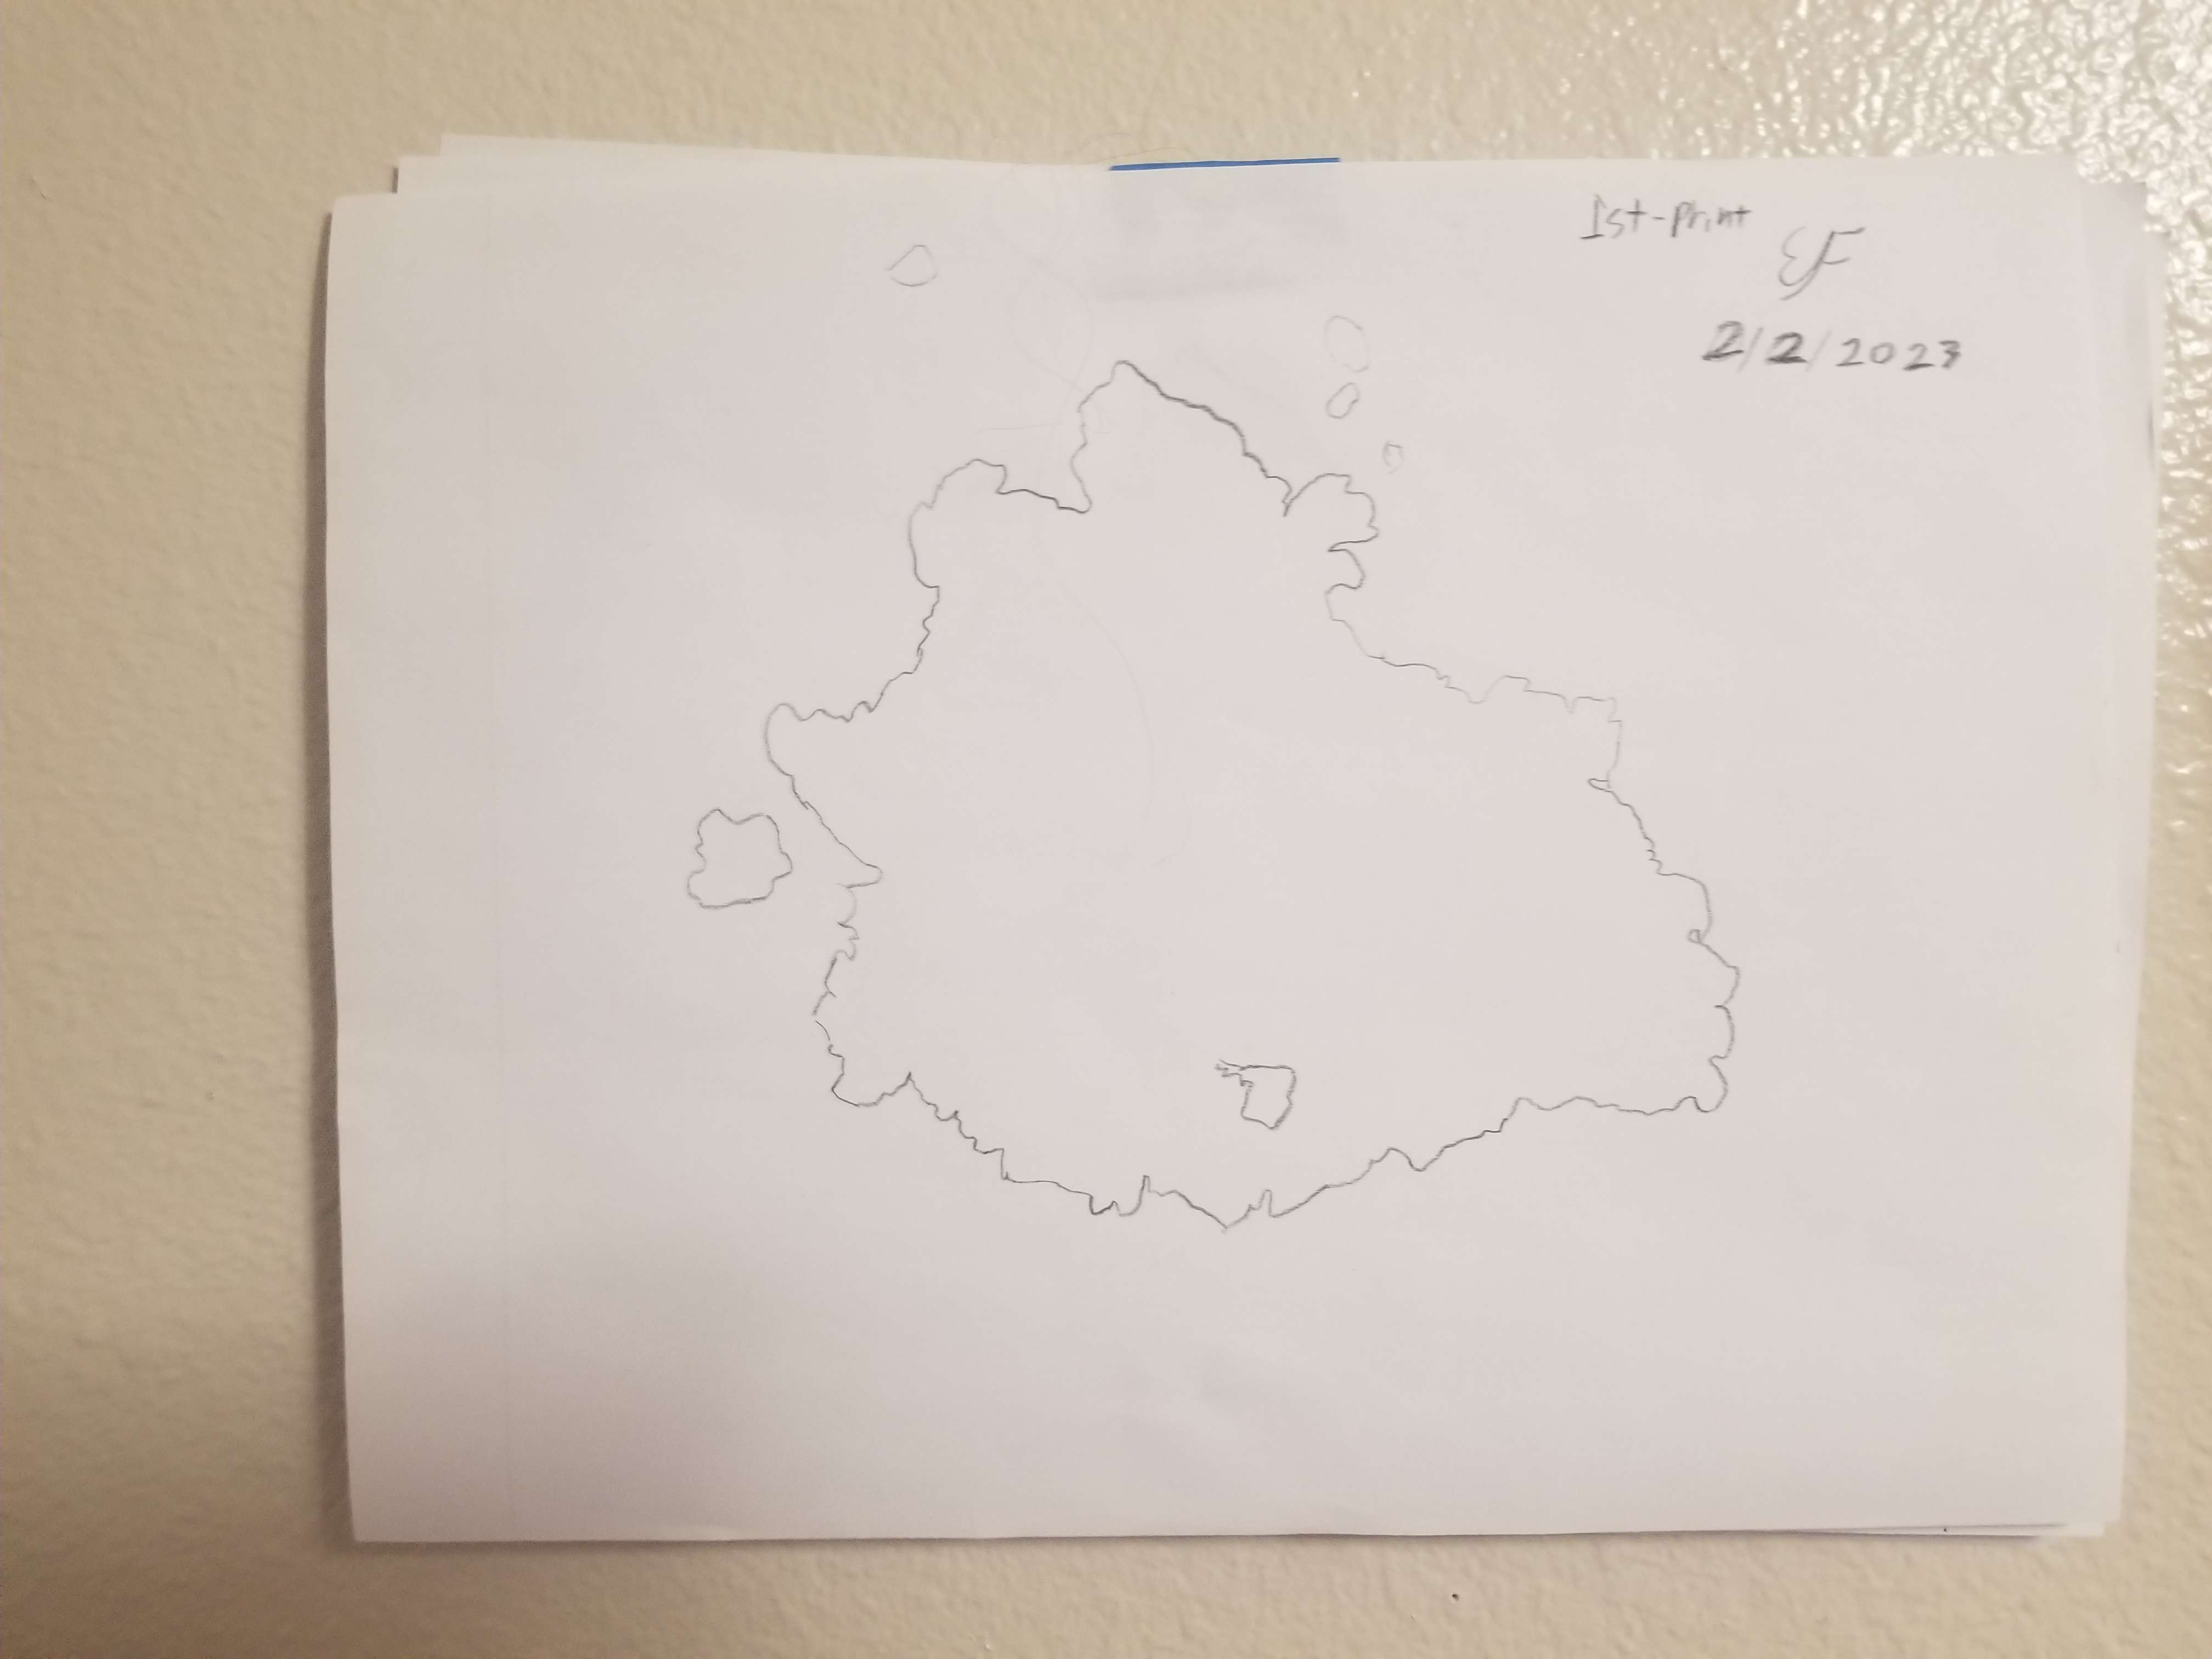 1st-print
EF
2/2/2023